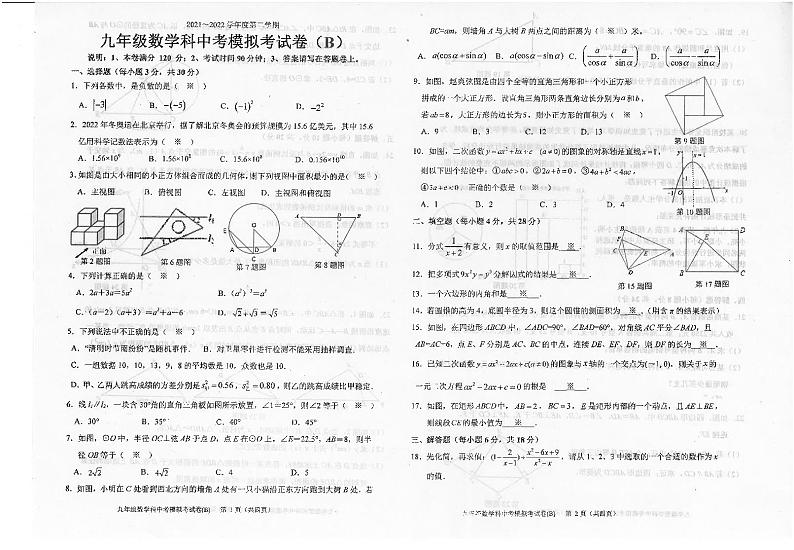 2021～2022学年度第二学期
九年级数学科中考模拟考试卷（B）
说明：1、本卷满分 120 分；2、考试时间 90 分钟；3、答案请写在答题卷上。
一、选择题（每小题 3 分，共 30 分）
1．下列各数中，是负数的是（ ※ ）
A．|-3| B．-(-5) C．(-1)² D．-2²
2．2022 年冬奥运在北京举行，据了解北京冬奥会的预算规模为 15.6 亿美元，其中 15.6
亿用科学记数法表示为（ ※ ）
A．1.56×10⁹ B．1.56×10⁸ C．15.6×10⁸ D．0.156×10¹⁰
3．如图是由大小相同的小正方体组合而成的几何体，则下列视图中面积最小的是（ ※ ）
A．主视图 B．俯视图 C．左视图 D．主视图和俯视图
正面
第2题图 第6题图 第7题图 第8题图
4．下列计算正确的是（ ※ ）
A．2a+3a=5a² B．(a²)³=a⁵
C．(a-2)(a+3)=a²+a-6 D．√2+√3=√5
5．下列说法中不正确的是（ ※ ）
A．“清明时节雨纷纷”是随机事件． B．对卫星零件进行检测不能采用抽样调查．
C．一组数据 10，10，13，9，8 的平均数是 10，众数也是 10．
D．甲、乙两人跳高成绩的方差分别是s²甲=0.56，s²乙=0.80，则乙的跳高成绩比甲稳定．
6．线 l₁∥l₂，一块含 30°角的直角三角板如图所示放置，∠1=25°，则∠2等于（ ※ ）
A．30° B．35° C．40° D．45°
7．如图，⊙O中，半径OC⊥弦AB于点D，点E在⊙O上，∠E=22.5°，AB=8，则半
径OB等于（ ※ ）
A．2√2 B．4√2 C．4 D．5
8．如图，小明在C处看到西北方向的墙角A处有一只小猫沿正东方向跑到大树B处．若
九年级数学科中考模拟考试卷(B) 第 1 页（共四页）
BC=am，则墙角A与大树B两点之间的距离为（ ※ ）米．
A．a(cosα+sinα) B．a(cosα-sinα) C．(a/cosα+a/sinα) D．(a/cosα-a/sinα)
9．如图，赵爽弦图是由四个全等的直角三角形和一个小正方形
拼成的一个大正方形．设直角三角形两条直角边长分别为a和b，
若ab=8，大正方形的边长为5，则小正方形的面积为（ ※ ）
A．9 B．3 C．12 D．13
第9题图
10．如图，二次函数y=ax²+bx+c (a≠0)的图象的对称轴是直线x=1，
则以下四个结论中：①abc>0，②2a+b=0，③4a+b²<4ac，
④3a+c<0．正确的个数是（ ※ ）
A．1 B．2 C．3 D．4
第10题图
二、填空题（每小题 4 分，共 28 分）
11．分式1/(x+2)有意义，则x的取值范围是 ※ ．
12．把多项式9x²y-y³分解因式的结果是 ※ ．
13．一个六边形的内角和是 ※ ．
14．若圆锥的高为4，底圆半径为3，则这个圆锥的侧面积为 ※ ．（用含π的结果表示）
第15题图 第17题图
15．如图，在四边形ABCD中，∠ADC=90°，∠BAD=60°，对角线AC平分∠BAD，且
AB=AC=6，点E、F分别是AC、BC的中点，连接DE、EF、DF，则DF的长为 ※ ．
16．已知二次函数y=ax²-2ax+c(a≠0)的图象与x轴的一个交点为(-1,0)，则关于x的
一元二次方程ax²-2ax+c=0的根是 ※ ．
17．如图，在矩形ABCD中，AB=2，BC=3，E是矩形内部的一个动点，且AE⊥BE，
则线段CE的最小值为 ※ ．
三、解答题（每小题 6 分，共 18 分）
18．先化简，再求值：(1-2/(x-1))÷(x²-6x+9)/(x²-x)，请从 1、2、3 中选取的一个合适的数作为x
的值．
九年级数学科中考模拟考试卷(B) 第 2 页（共四页）